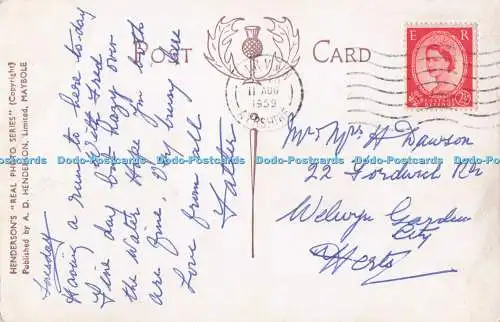 POST CARD
E R
POSTAGE
11 AUG
1959
HENDERSON'S "REAL PHOTO SERIES" (Copyright)
Published by A. D. HENDERSON, Limited, MAYBOLE
Tuesday
Having a run to here to-day
With Fred
Fine day but hazy over
the water Hope you both
are fine, Very sunny here
Love from all
Father
Mr & Mrs H Dawson
22 Fordwich Rd
Welwyn Garden
City
Herts
Dodo-Postcards Dodo-Postcards Dodo-Postcards Dodo-Postcards Dodo-Postcards Dodo-Postcards